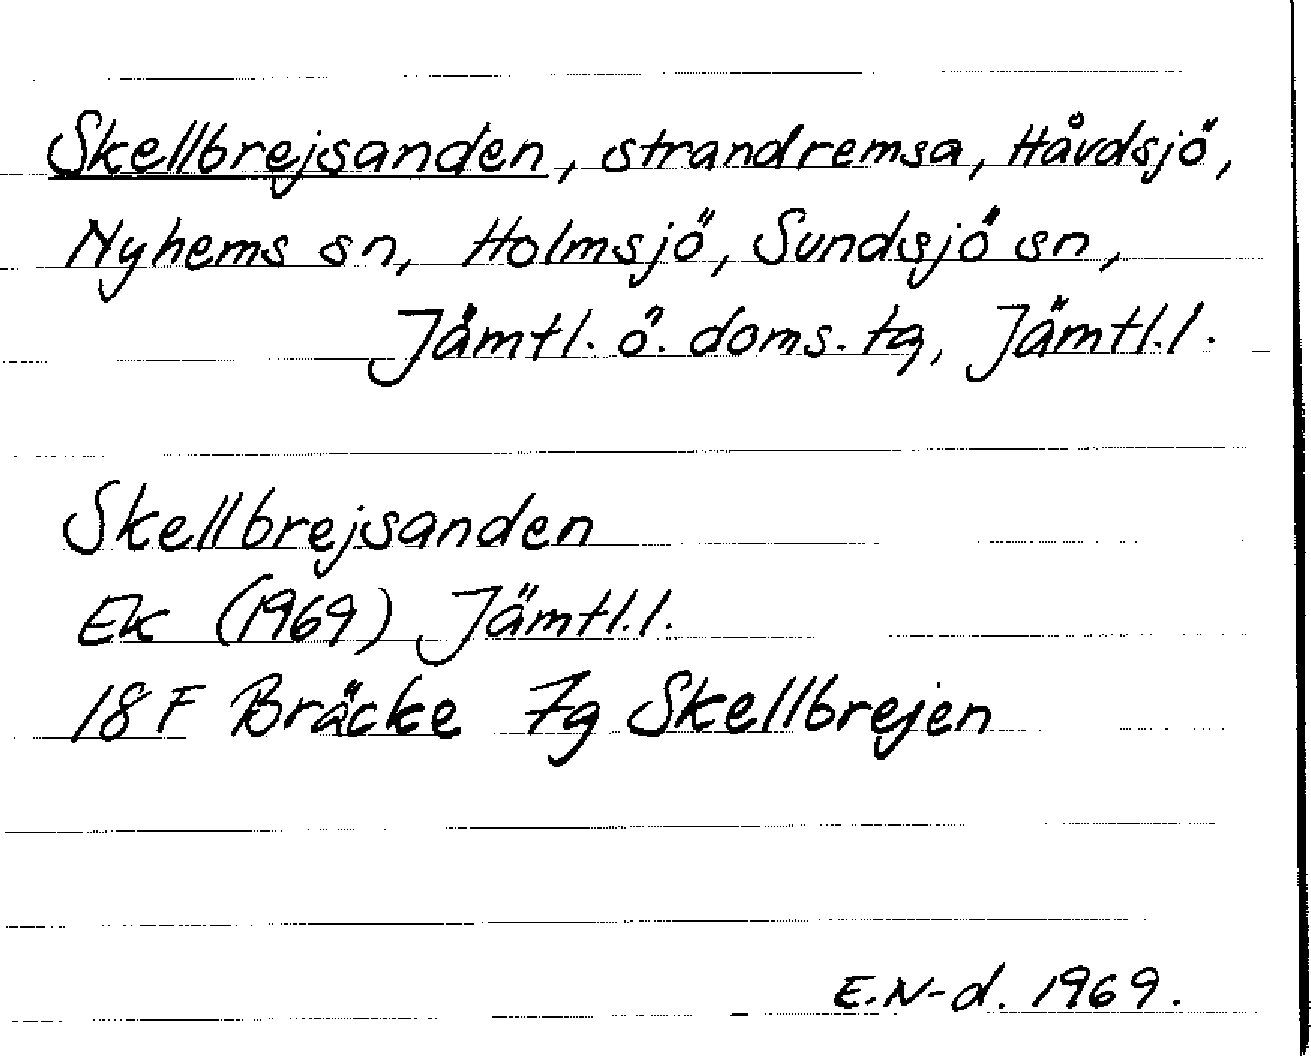 Skellbrejsanden, strandremsa, Håvdsjö,
Nyhems sn, Holmsjö, Sundsjö sn,
Jämtl. ö. doms. tg, Jämtl.l.
Skellbrejsanden
Ek (1969) Jämtl.l.
18 F Bräcke 7g Skellbrejen
E.N-d. 1969.